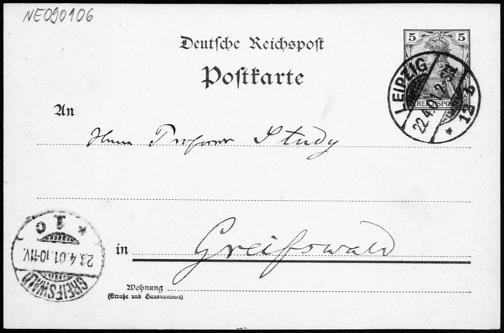 NE090106
Deutsche Reichspost
Postkarte
5 5
REICHSPOST
LEIPZIG
22.4.
12 b
An
Herrn Professor Study
in Greifswald
Wohnung
(Straße und Hausnummer)
GREIFSWALD
23.4.01.10-11V.
* 1 c